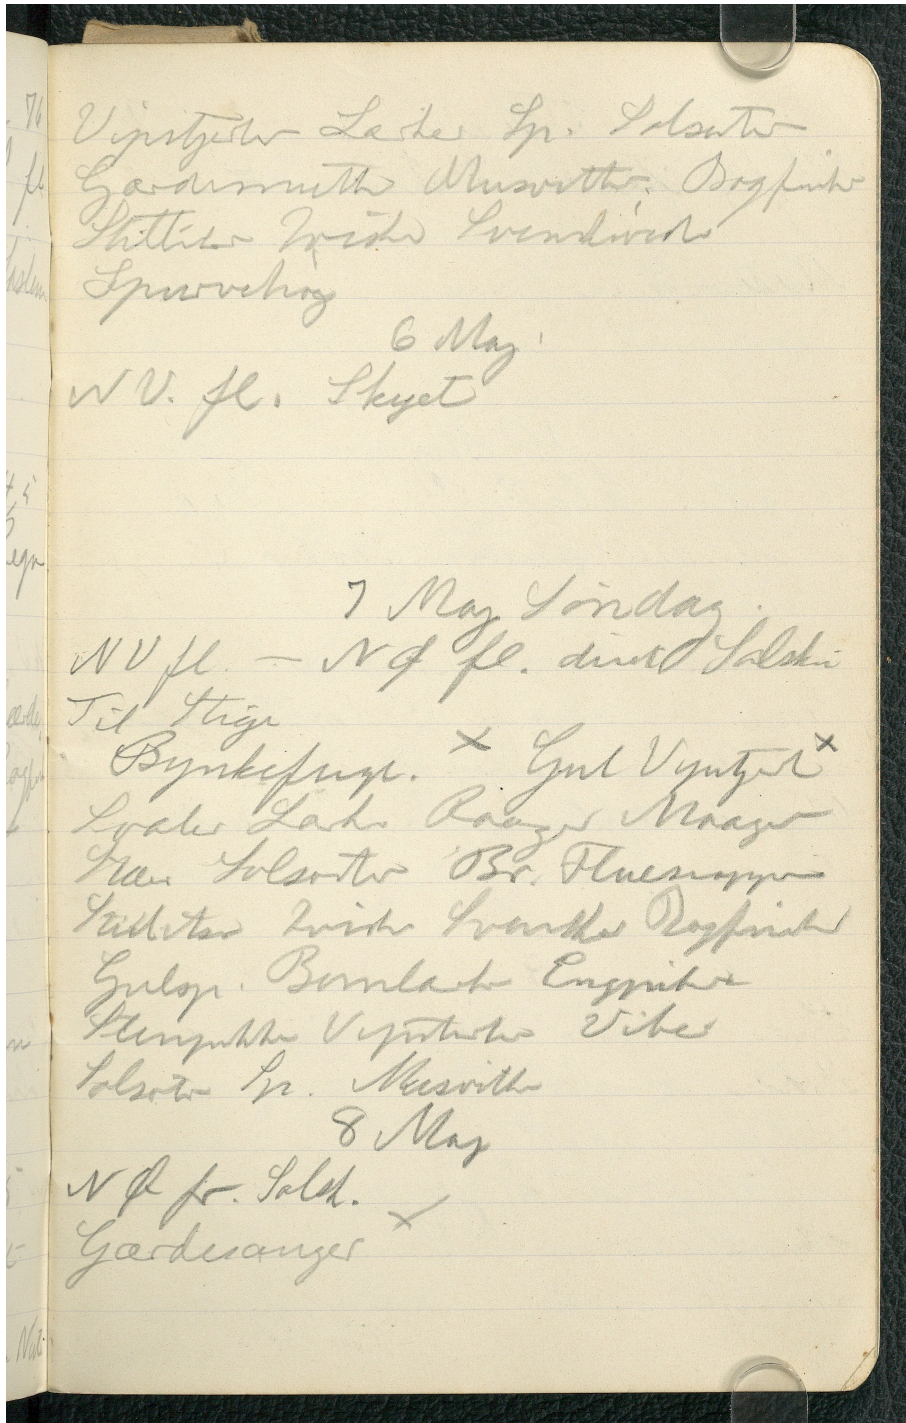 Vipstjerter Lærker Sp. Solsorter
Gærdesmutter Musvitter. Bogfinker
Stillitser Irisker Svenskirisk
Spurvehøg
6 Maj
N V. fl. Skyet
7 Maj Søndag.
NV fl. — N Ø fl. Solskin
Til Stige
Bynkefugl. × Gul Vipstjert ×
Svaler Lærker Raager Maager
Stær Solsorter Br. Fluesnapper
Stillitser Irisker Svenskirisk Bogfinker
Gulsp. Bomlærker Engpiber
Stenpikker Vipstjerter Viber
Solsorter Sp. Musvitter
8 Maj
N Ø fr. Solsk.
Gærdesanger ×